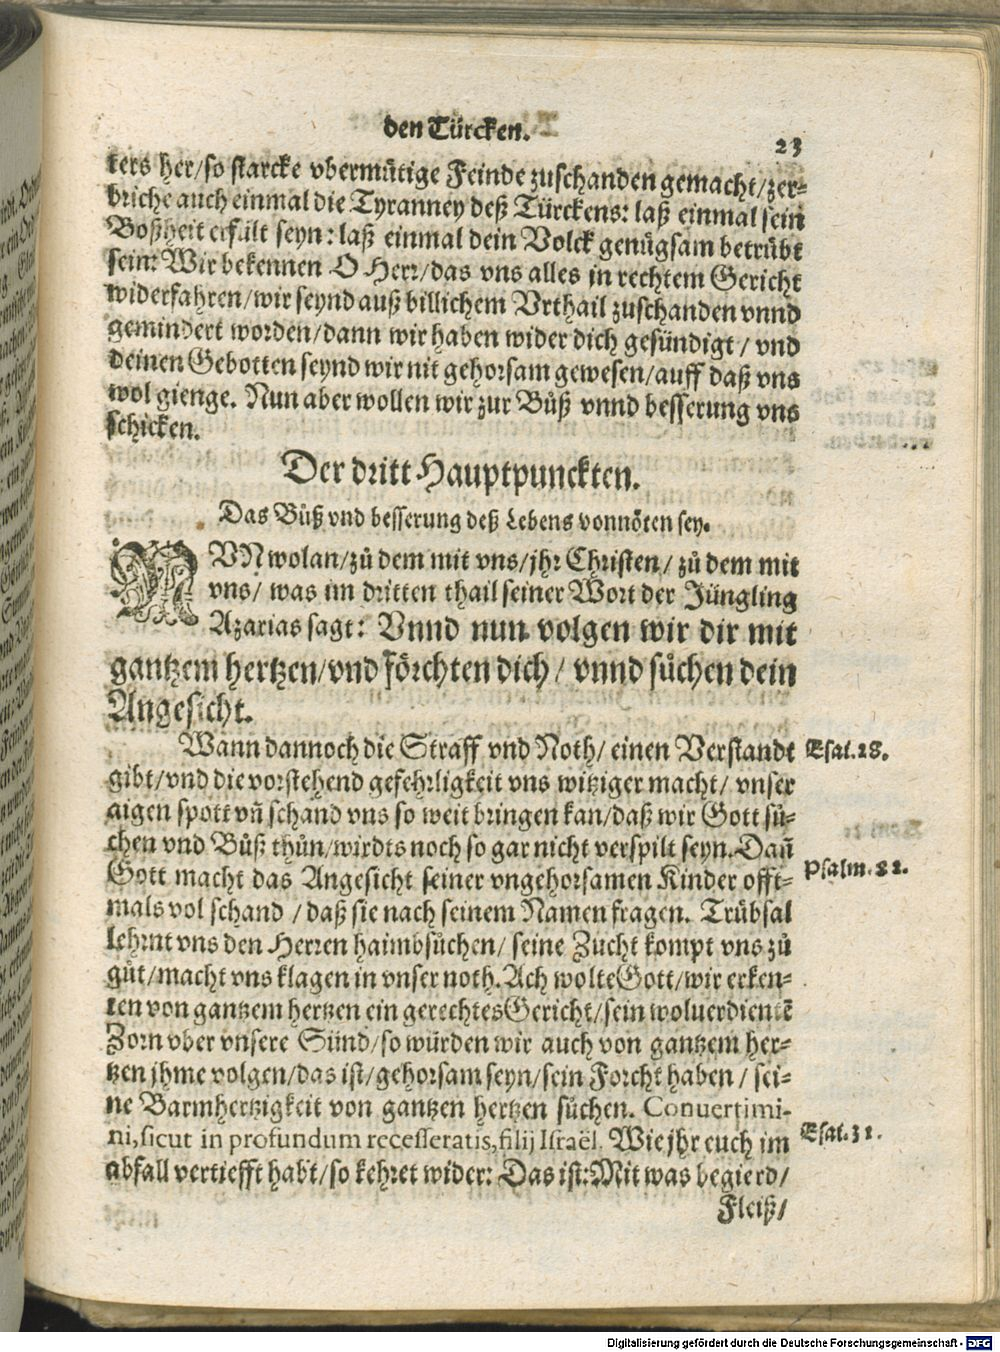 den Türcken.
23
ters her/so starcke vbermütige Feinde zuschanden gemacht/zer-
briche auch einmal die Tyranney deß Türckens: laß einmal sein
Boßheit erfült seyn: laß einmal dein Volck genůgsam betrübt
sein: Wir bekennen O Herr/das vns alles in rechtem Gericht
widerfahren/wir seynd auß billichem Vrthail zuschanden vnnd
gemindert worden/dann wir haben wider dich gesündigt / vnd
deinen Gebotten seynd wir nit gehorsam gewesen/auff daß vns
wol gienge. Nun aber wollen wir zur Bůß vnnd besserung vns
schicken.
Der dritt Hauptpunckten.
Das Bůß vnd besserung deß Lebens vonnöten sey.
NVN wolan/zů dem mit vns/jhr Christen/ zů dem mit
vns/ was im dritten thail seiner Wort der Jüngling
Azarias sagt: Vnnd nun volgen wir dir mit
gantzem hertzen/vnd förchten dich/ vnnd sůchen dein
Angesicht.
Wann dannoch die Straff vnd Noth/ einen Verstandt
Esai.28.
gibt/vnd die vorstehend gefehrligkeit vns witziger macht/ vnser
aigen spott vn̄ schand vns so weit bringen kan/daß wir Gott sů-
chen vnd Bůß thůn/wirdts noch so gar nicht verspilt seyn. Dan̄
Gott macht das Angesicht seiner vngehorsamen Kinder offt-
Psalm.82.
mals vol schand / daß sie nach seinem Namen fragen. Trübsal
lehrnt vns den Herren haimbsůchen/ seine Zucht kompt vns zů
gůt/macht vns klagen in vnser noth. Ach wolte Gott/wir erken-
ten von gantzem hertzen ein gerechtes Gericht/sein woluerdientē
Zorn vber vnsere Sünd/so würden wir auch von gantzem her-
tzen jhme volgen/das ist/gehorsam seyn/sein Forcht haben / sei-
ne Barmhertzigkeit von gantzen hertzen sůchen. Conuertimi-
ni, sicut in profundum recesseratis, filij Israël. Wie jhr euch im
Esai.31.
abfall vertiefft habt/so kehret wider: Das ist: Mit was begierd/
Fleiß/
Digitalisierung gefördert durch die Deutsche Forschungsgemeinschaft - DFG